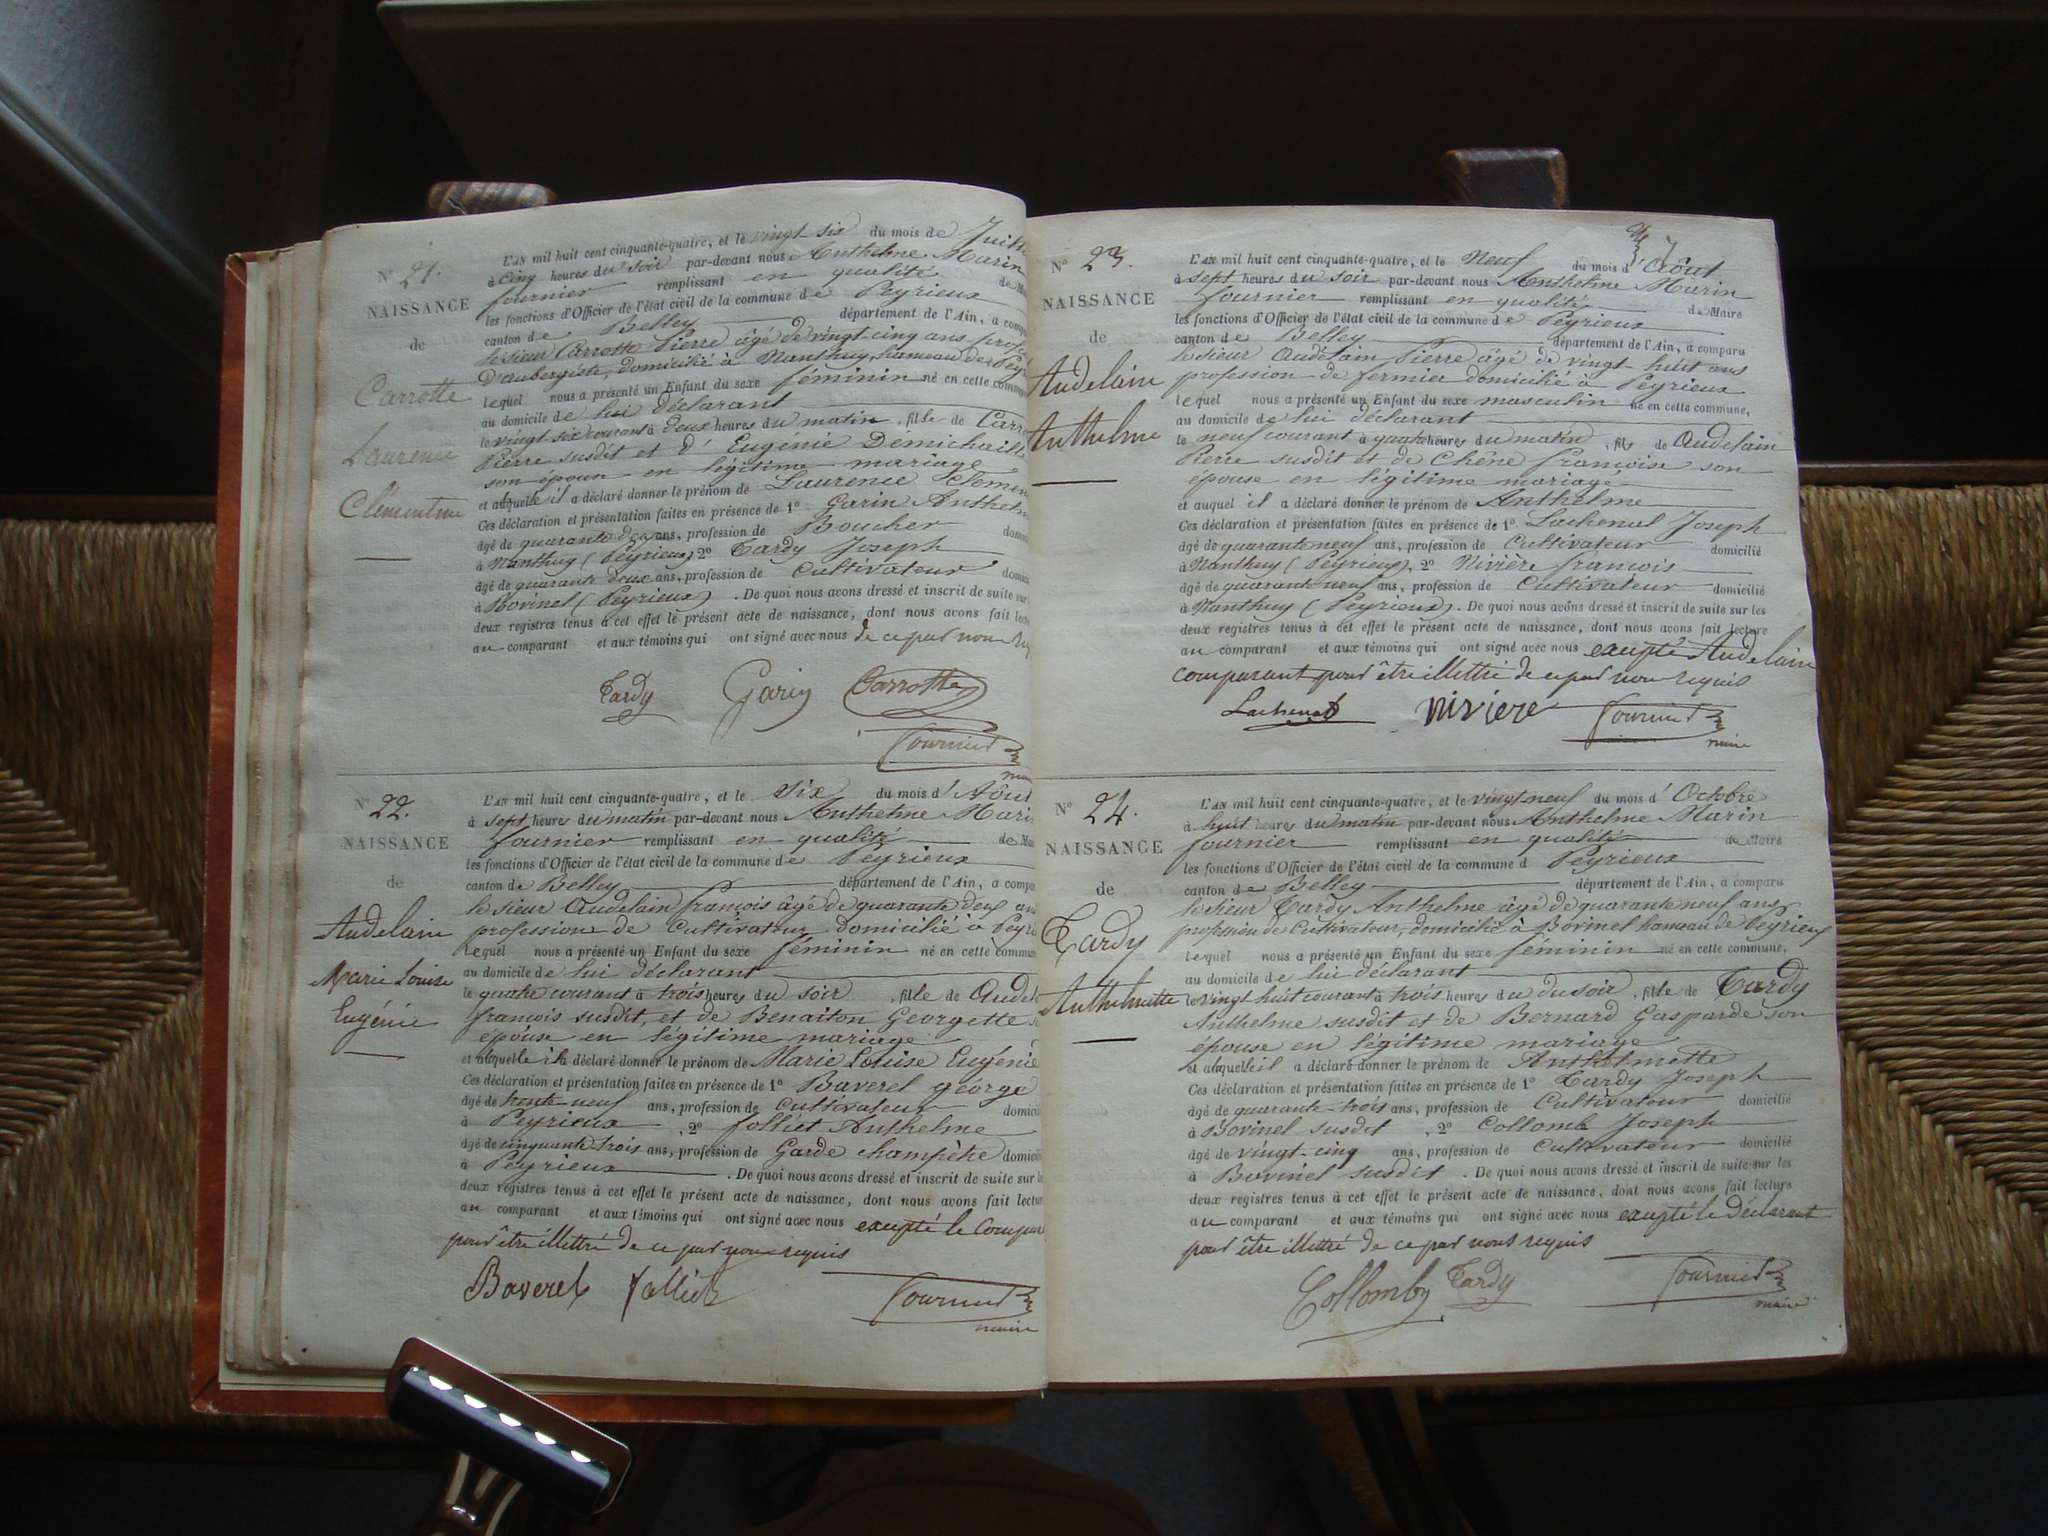 N° 21.
NAISSANCE
de
Carrotte
Laurence
Clémentine
L'AN mil huit cent cinquante-quatre, et le vingt six du mois de Juill
à cinq heures du soir par-devant nous Anthelme Marin
fournier remplissant en qualité de Ma
les fonctions d'Officier de l'état civil de la commune de Peyrieux
canton de Belley département de l'Ain, a compa
le sieur Carrotte Pierre âgé de vingt cinq ans profes
D'aubergiste, domicilié à Nanthuy, hameau de Peyr
lequel nous a présenté un Enfant du sexe féminin né en cette commune
au domicile de lui déclarant
le vingt six courant à deux heures du matin, fille de Carro
Pierre susdit et d'Eugénie Démichaille
son épouse en légitime mariage
et à laquelle il a déclaré donner le prénom de Laurence Clémen
Ces déclaration et présentation faites en présence de 1° Garin Anthelm
âgé de quarante deux ans, profession de Boucher domici
à Nanthuy (Peyrieux) 2° Tardy Joseph
âgé de quarante deux ans, profession de Cultivateur domici
à Bovinel (Peyrieux). De quoi nous avons dressé et inscrit de suite sur
deux registres tenus à cet effet le présent acte de naissance, dont nous avons fait lectu
au comparant et aux témoins qui ont signé avec nous de ce par nous req
Tardy Garin Carrotte
fournier
maire
N° 22.
NAISSANCE
de
Audelain
Marie Louise
Eugénie
L'AN mil huit cent cinquante-quatre, et le Six du mois d'Aôut
à sept heures du matin par-devant nous Anthelme Marin
fournier remplissant en qualité de Ma
les fonctions d'Officier de l'état civil de la commune de Peyrieux
canton de Belley département de l'Ain, a compa
le sieur Audelain françois âgé de quarante deux ans
profession de Cultivateur domicilié à Peyri
lequel nous a présenté un Enfant du sexe féminin né en cette commun
au domicile de lui déclarant
le quatre courant à trois heures du soir, fille de Audel
françois susdit, et de Benaiton Georgette s
épouse en légitime mariage
et à laquelle il a déclaré donner le prénom de Marie Louise Eugénie
Ces déclaration et présentation faites en présence de 1° Baverel george
âgé de trente-neuf ans, profession de Cultivateur domici
à Peyrieux, 2° folliet Anthelme
âgé de cinquante trois ans, profession de Garde champêtre domici
à Peyrieux. De quoi nous avons dressé et inscrit de suite sur l
deux registres tenus à cet effet le présent acte de naissance, dont nous avons fait lectu
au comparant et aux témoins qui ont signé avec nous excepté le Compar
pour être illettré de ce par nous requis
Baverel folliet fournier
maire
N° 23.
NAISSANCE
de
Audelain
Anthelme
L'AN mil huit cent cinquante-quatre, et le Neuf du mois d'Aôut
à sept heures du soir par-devant nous Anthelme Marin
fournier remplissant en qualité de Maire
les fonctions d'Officier de l'état civil de la commune de Peyrieux
canton de Belley département de l'Ain, a comparu
le sieur Audelain Pierre âgé de vingt-huit ans
profession de fermier domicilié à Peyrieux
lequel nous a présenté un Enfant du sexe masculin né en cette commune,
au domicile de lui déclarant
le neuf courant à quatre heures du matin, fils de Audelain
Pierre susdit et de Chêne françoise son
épouse en légitime mariage
et auquel il a déclaré donner le prénom de Anthelme
Ces déclaration et présentation faites en présence de 1° Lachenal Joseph
âgé de quarante neuf ans, profession de Cultivateur domicilié
à Nanthuy (Peyrieux), 2° Nivière françois
âgé de quarante neuf ans, profession de Cultivateur domicilié
à Nanthuy (Peyrieux). De quoi nous avons dressé et inscrit de suite sur les
deux registres tenus à cet effet le présent acte de naissance, dont nous avons fait lecture
au comparant et aux témoins qui ont signé avec nous excepté Audelain
comparant pour être illettré de ce par nous requis
Lachenal nivière fournier
maire
N° 24.
NAISSANCE
de
Tardy
Anthelmette
L'AN mil huit cent cinquante-quatre, et le vingt neuf du mois d'Octobre
à huit heures du matin par-devant nous Anthelme Marin
fournier remplissant en qualité de Maire
les fonctions d'Officier de l'état civil de la commune d Peyrieux
canton de Belley département de l'Ain, a comparu
le sieur Tardy Anthelme âgé de quarante neuf ans,
profession de Cultivateur, domicilié à Bovinel hameau de Peyrieux
lequel nous a présenté un Enfant du sexe féminin né en cette commune,
au domicile de lui déclarant
le vingt huit courant à trois heures du du soir, fille de Tardy
Anthelme susdit et de Bernard Gasparde son
épouse en légitime mariage
et à laquelle il a déclaré donner le prénom de Anthelmette
Ces déclaration et présentation faites en présence de 1° Tardy Joseph
âgé de quarante-trois ans, profession de Cultivateur domicilié
à Bovinel susdit, 2° Collomb Joseph
âgé de vingt-cinq ans, profession de Cultivateur domicilié
à Bovinel susdit. De quoi nous avons dressé et inscrit de suite sur les
deux registres tenus à cet effet le présent acte de naissance, dont nous avons fait lecture
au comparant et aux témoins qui ont signé avec nous excepté le Déclarant
pour être illettré de ce par nous requis
Collomby Tardy fournier
maire